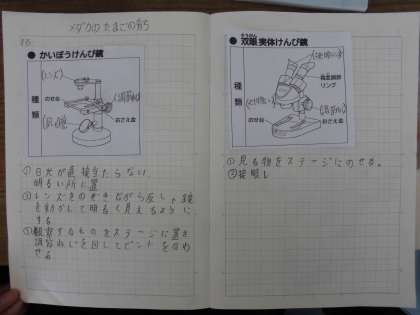 メダカのたまごの育ち
● かいぼうけんび鏡
(レンズ)
種類
のせ台
(調節ねじ)
おさえ金
(反しゃ鏡)
① 日光が直接当たらない
明るい所に置
② レンズをのぞきながら反しゃ鏡
を動かして明るく見えるように
する
③ 観察するものをステージに置き
調節ねじを回してピントを合わ
せる
そうがん
● 双眼実体けんび鏡
(接眼レンズ)
視度調節
リング
種類
(対物レンズ)
のせ台
(調節ねじ)
おさえ金
① 見る物をステージにのせる。
② 接眼レ